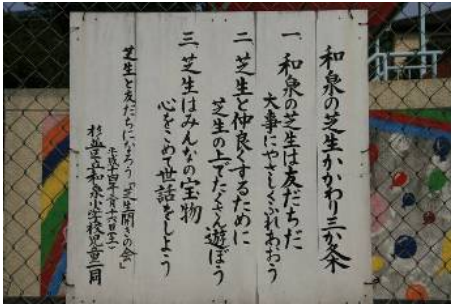 和泉の芝生かかわり三か条
一 和泉の芝生は友だちだ
大事にやさしくふれあおう
二 芝生と仲良くするために
芝生の上でたくさん遊ぼう
三 芝生はみんなの宝物
心をこめて世話をしよう
芝生と友だちになろう「芝生開きの会」
杉並区立和泉小学校児童一同